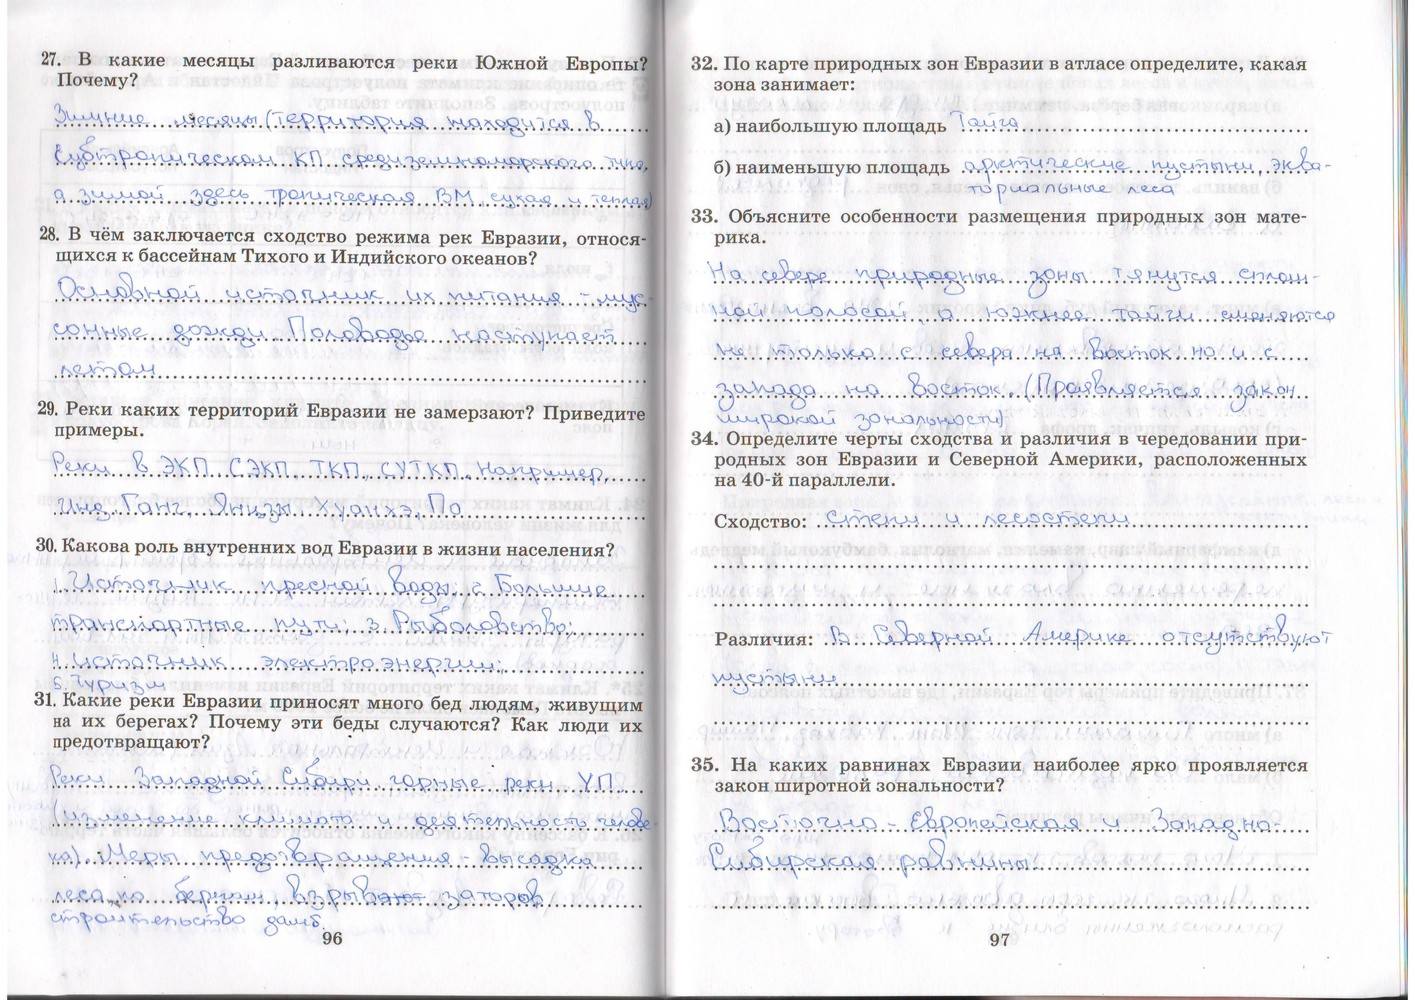 27. В какие месяцы разливаются реки Южной Европы?
Почему?
Зимние месяцы (территория находится в
субтропическом КП средиземноморского типа,
а зимой здесь тропическая ВМ, сухая и теплая)
28. В чём заключается сходство режима рек Евразии, относя-
щихся к бассейнам Тихого и Индийского океанов?
Основной источник их питания - мус-
сонные дожди. Половодье наступает
летом
29. Реки каких территорий Евразии не замерзают? Приведите
примеры.
Реки в ЭКП, СЭКП, ТКП, СУТКП. Например,
Инд, Ганг, Янцзы, Хуанхэ, По
30. Какова роль внутренних вод Евразии в жизни населения?
1. Источник пресной воды; 2. Большие
транспортные пути; 3. Рыболовство;
4. источник электроэнергии;
5. Туризм
31. Какие реки Евразии приносят много бед людям, живущим
на их берегах? Почему эти беды случаются? Как люди их
предотвращают?
Реки Западной Сибири, горные реки, УП.
(изменение климата и деятельность челове-
ка). Меры предотвращения - высадка
леса по берегам, взрывают заторов
строительство дамб.
96
32. По карте природных зон Евразии в атласе определите, какая
зона занимает:
а) наибольшую площадь Тайга
б) наименьшую площадь арктические пустыни, эква-
ториальные леса
33. Объясните особенности размещения природных зон мате-
рика.
На севере природные зоны тянутся сплош-
ной полосой, а южнее тайги сменяются
не только с севера на восток, но и с
запада на восток. (Проявляется закон
широкой зональности)
34. Определите черты сходства и различия в чередовании при-
родных зон Евразии и Северной Америки, расположенных
на 40-й параллели.
Сходство: Степи и лесостепи
Различия: В Северной Америке отсутствуют
пустыни
35. На каких равнинах Евразии наиболее ярко проявляется
закон широтной зональности?
Восточно-Европейская и Западно-
Сибирская равнины
97